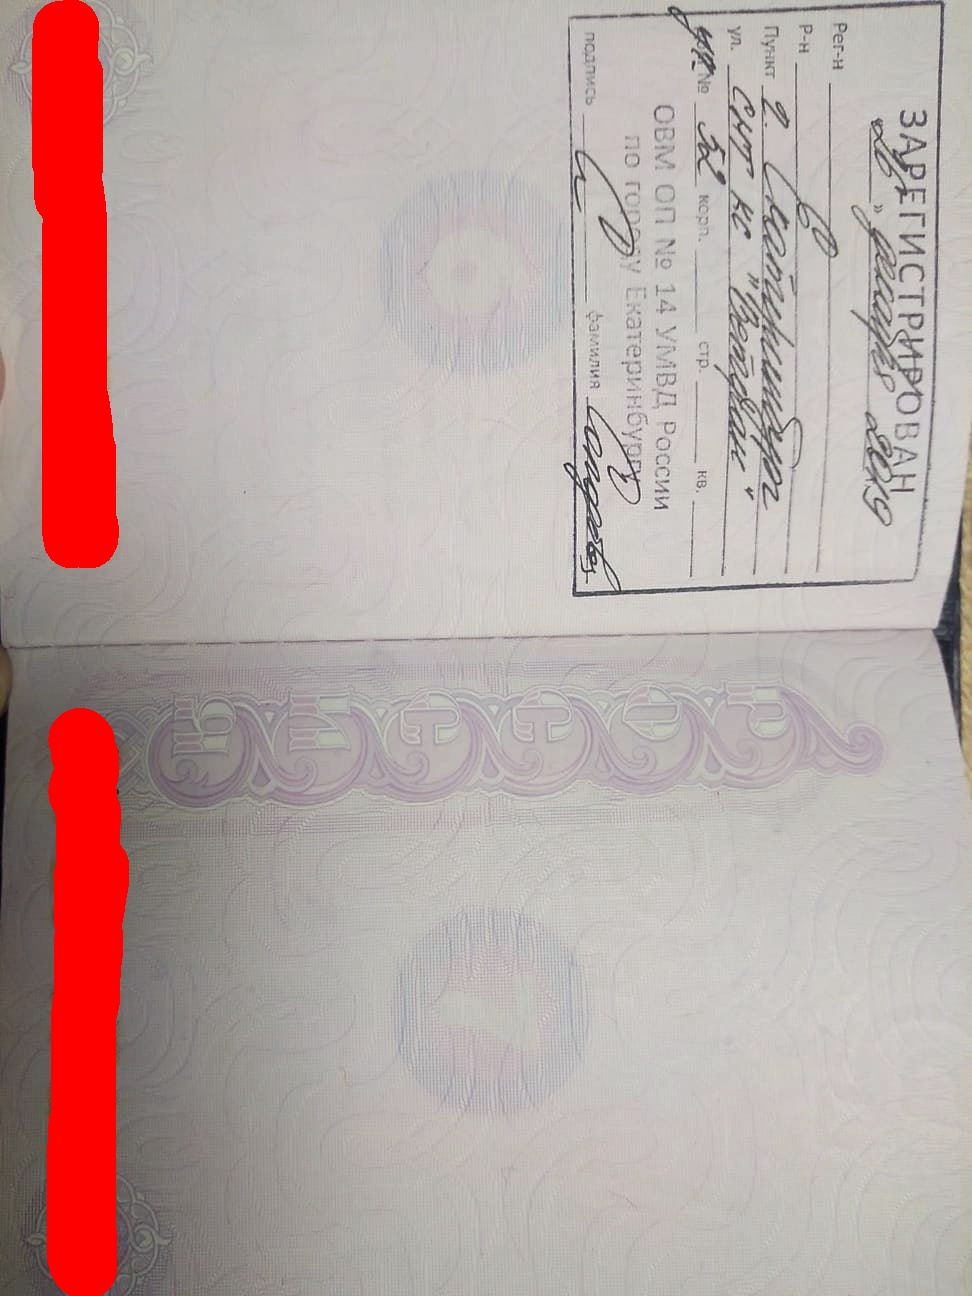 ЗАРЕГИСТРИРОВАН
" " декабря 2019
Рег-н
Р-н
Пункт г. Екатеринбург
ул. снт кс "Ветеран"
уч. № 52 корп. стр. кв.
ОВМ ОП № 14 УМВД России
по городу Екатеринбургу
подпись фамилия